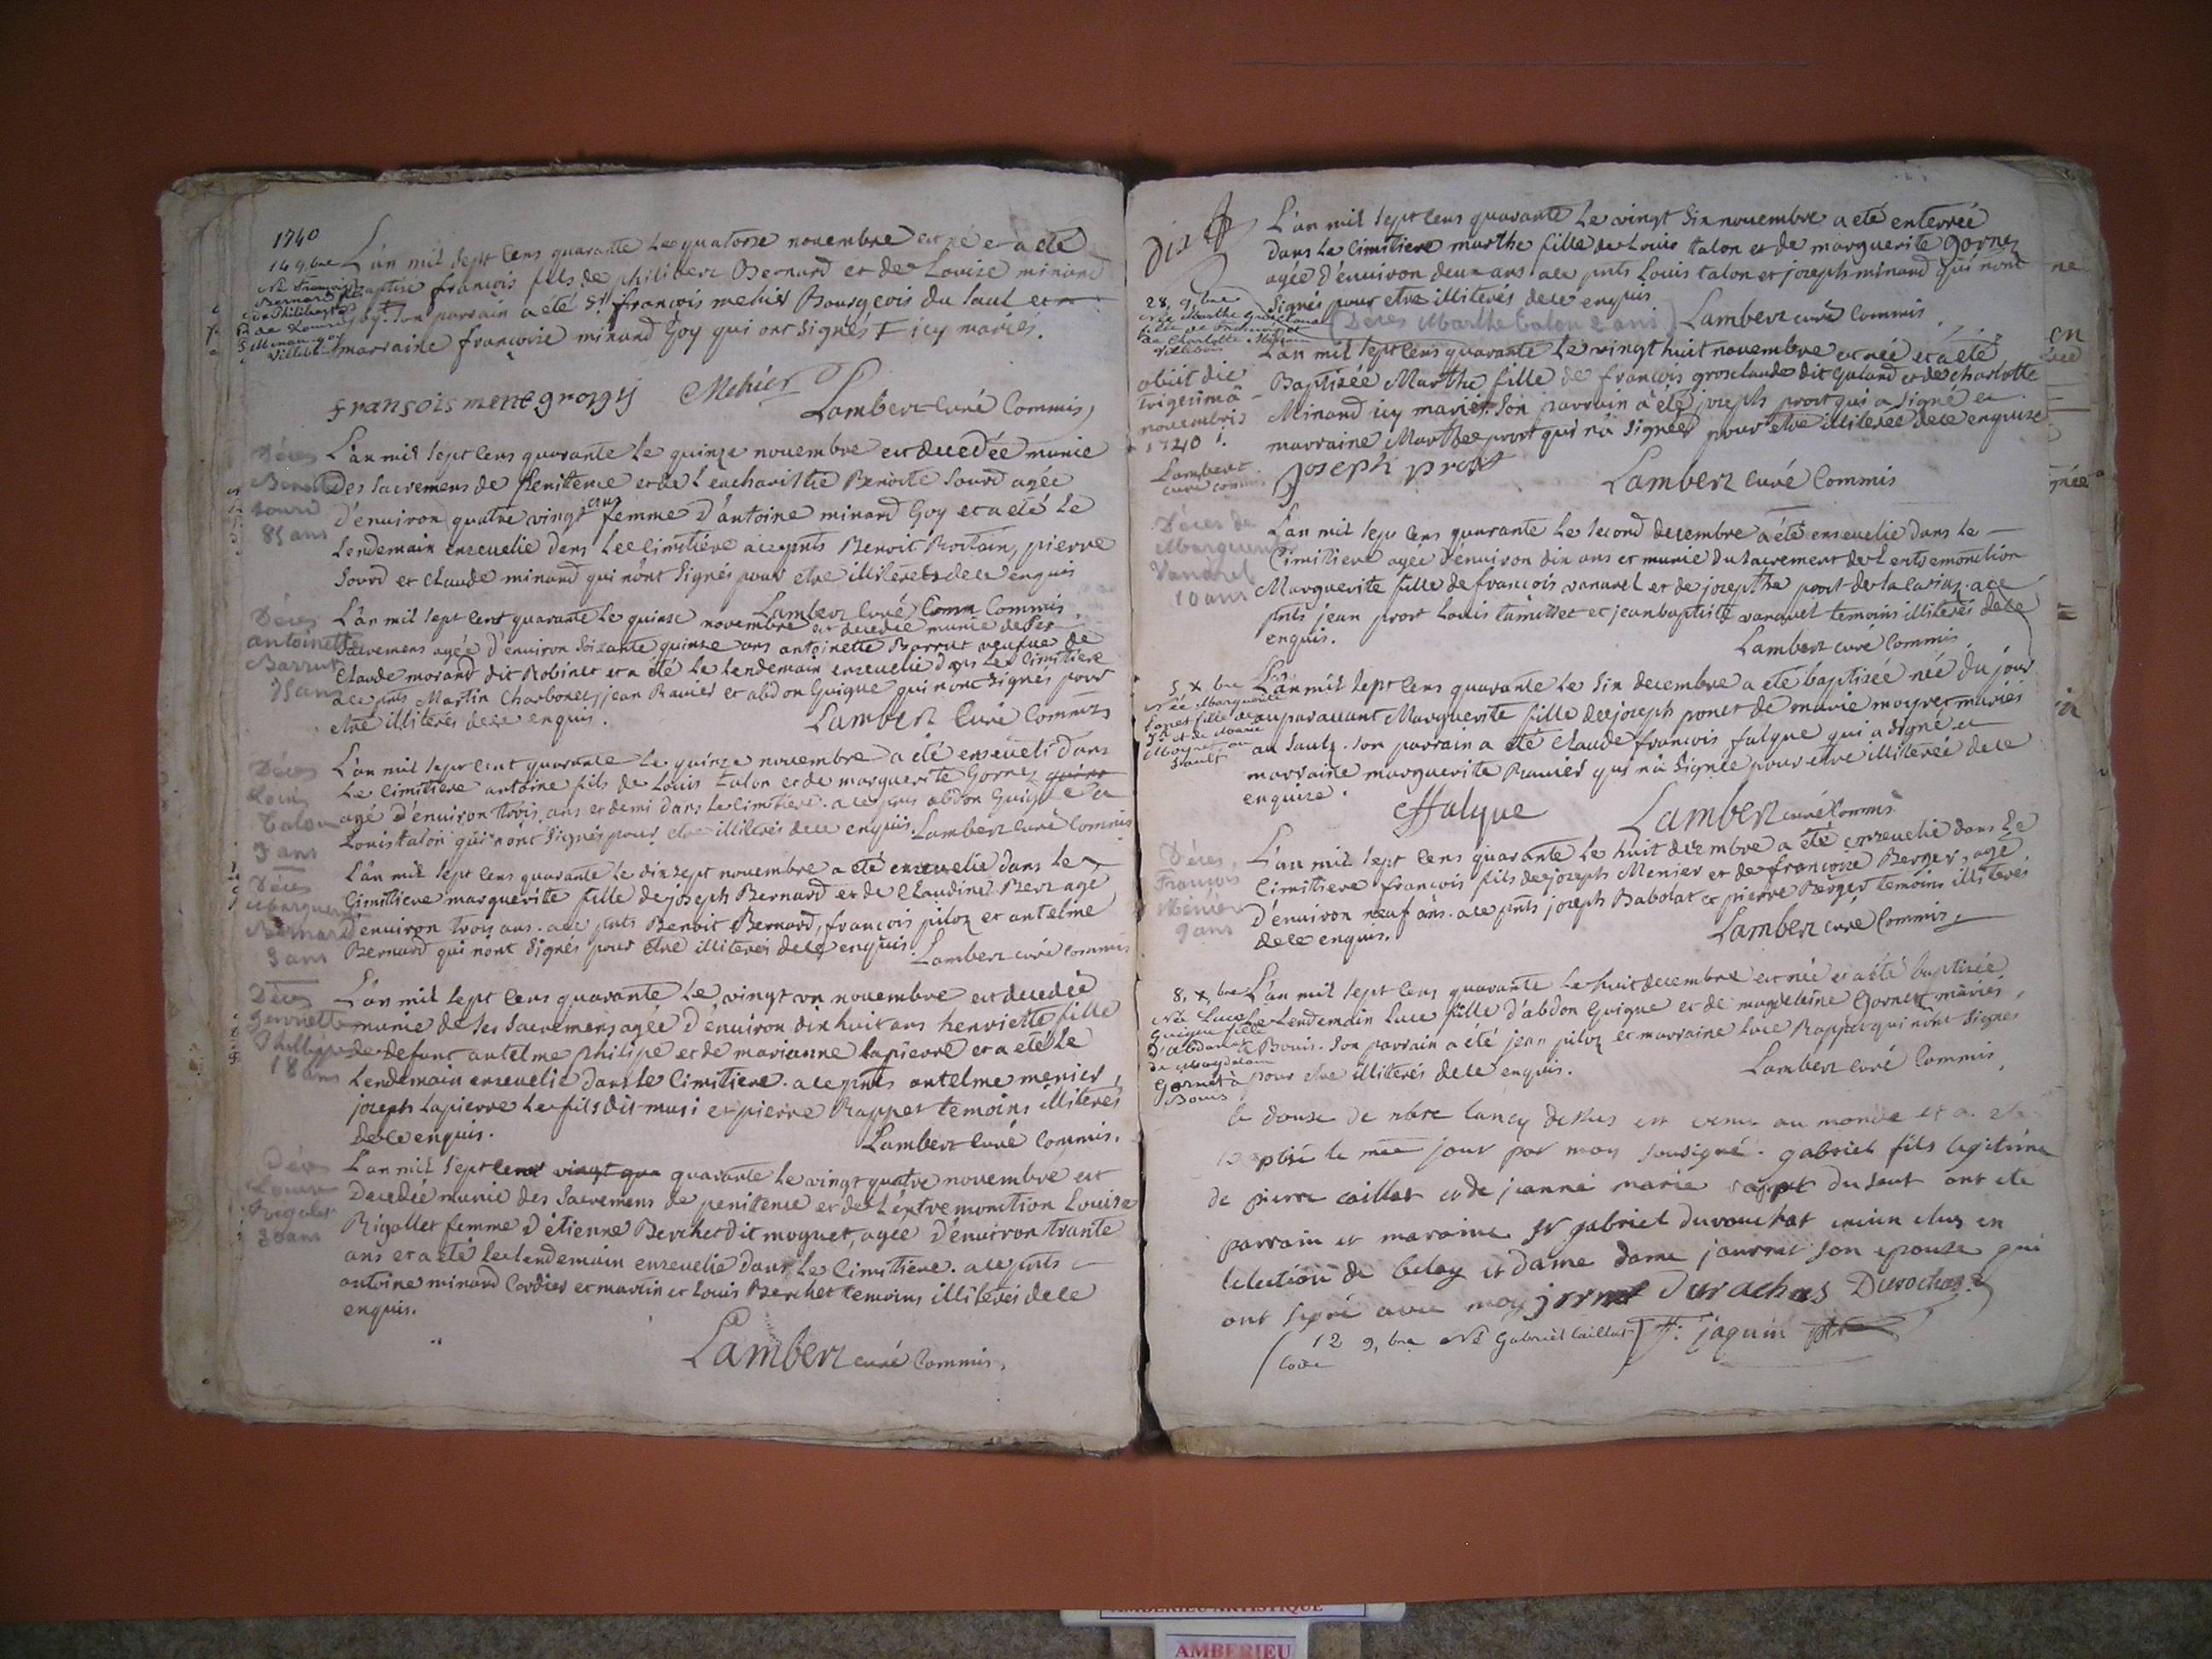 1740
14 9.bre
Né François
Bernard fils
de Philibert
L'an mil sept cens quarante le quatorse novembre est né et a été
baptisé françois fils de philibert Bernard et de Louise minand
goy + son parrain a été Sr françois mehier Bourgeois du Saul et
marraine françoise minand Goy qui ont signés + icy mariés.
Mehier
Lambert Curé Commis
Déces
Benoite
sourd
85 ans
L'an mil sept cens quarante le quinze novembre est decedée munie
Des sacremens de Penitence et de L'eucharistie Benoite sourd agée
D'environ quatre vingt cinq femme D'antoine minand Goy et a été le
Lendemain enseuelie dans Le Cimitiére a ce pnts Benoit Roitain, pierre
Sourd et Claude minand qui n'ont signés pour etre illiterés de ce enquis
Lambert Curé Commis
Déces
antoinette
Barrut
75 ans
L'an mil sept cent quarante le quinse novembre est decedée munie de ses
sacremens agée d'environ soixante quinse ans antoinette Barrut veufue de
Claude morand dit Robinet et a été le lendemain enseuelie dans Le Cimitiere
a ce pnts Martin Charbonet, jean Ravier et abdon Guigue qui n'ont signés pour
etre illiterés de ce enquis.
Lambert Curé Commis
Déces
Louis
Talon
3 ans
L'an mil sept cent quarante le quinze novembre a été enseueli dans
Le Cimitiere antoine fils de Louis talon et de marguerite Gornez
agé d'environ trois ans et demi dans le Cimitiere. a ce pnts abdon Guigue et
Louis talon qui n'ont signés pour etre illiterés de ce enquis. Lambert Curé Commis
Déces
Marguerite
Bernard
3 ans
L'an mil sept cens quarante le dix sept novembre a été enseuelie dans le
Cimitiere marguerite fille de joseph Bernard et de Claudine Berz agé
d'environ trois ans. a ce pnts Benoit Bernard, françois piloz et antelme
Bernard qui n'ont signés pour etre illiterés de ce enquis. Lambert curé commis
Déces
henriette
Philippe
18 ans
L'an mil sept cens quarante le vingt un novembre est decedée
munie de ses sacremens agée d'environ dix huit ans henriette fille
de defunt antelme philipe et de marianne lapierre et a été le
Lendemain enseuelie dans le Cimitiere. a ce pnts antelme menier,
joseph Lapierre le fils dit musi et pierre Rappet temoins illiterés
de ce enquis.
Lambert Curé Commis.
Déces
Louise
Rigollet
30 ans
L'an mil sept cens vingt qua quarante le vingt quatre novembre est
Decedée munie des sacremens de penitence et de L'extremonction Louise
Rigollet femme d'étienne Berchet dit moguet, agée d'environ trante
ans et a été le lendemain enseuelie dans le Cimitiere. a ce pnts
antoine minand Cordier et martin et Louis Berchet temoins illiterés de ce
enquis.
Lambert curé Commis,
Dix
L'an mil sept cens quarante le vingt six novembre a eté enterrée
dans le Cimitiere marthe fille de Louis talon et de marguerite Gornez
agée d'environ deux ans a ce pnts Louis talon et joseph minand qui n'ont
Signés pour etre illiterés de ce enquis
(Déces Marthe Talon 2 ans) Lambert curé Commis
28. 9.bre
Née Marthe Grosclaude
fille de François et
de Charlotte Minand
Villebois
obiit die
trigesimâ
novembris
1740 :
Lambert
curé commis
L'an mil sept cens quarante le vingt huit novembre est née et a eté
Baptisée Marthe fille de françois grosclaude dit Galand et de charlotte
Minand icy mariés. Son parrain a été joseph prost qui a signé et
marraine Marthe prost qui n'a Signée pour etre illiterée de ce enquise
joseph prost
Lambert Curé Commis
Déces de
Marguerite
Vanarel
10 ans
L'an mil sept cens quarante le second decembre a été enseuelie dans le
Cimitiere agée d'environ dix ans et munie du sacrement de L'extremonction
Marguerite fille de françois vanarel et de josepthe prost de la a ce
pnts jean prost Louis et jean baptiste vanarel temoins illiterés de ce
enquis.
Lambert curé Commis
5 Xbre
Née Marguerite
Ponet fille de
Jh et de Marie
Moyret au
Sault
L'an mil sept cens quarante le six decembre a eté baptisée née du jour
auparauant Marguerite fille de joseph ponet de marie moyret mariés
au Saulz. son parrain a eté Claude françois falque qui a signé et
marraine marguerite Ravier qui n'a signée pour etre illiterée de ce
enquise.
Falque
Lambert curé Commis
Déces
François
Ménier
9 ans
L'an mil sept cens quarante le huit decembre a été enseuelie dans le
Cimitiere françois fils de joseph Menier et de françoise Berger, agé
D'environ neuf ans. a ce pnts joseph Babolat et pierre Berger temoins illiterés
de ce enquis.
Lambert curé Commis
8, Xbre
Née Luce
Guigue fille
D'abdon et
de Magdelaine
Gornet à
Bouis
L'an mil sept cens quarante le huit decembre est née et a été baptisée
Le Lendemain Luce fille d'abdon Guigue et de magdeleine Gornet mariés
à Bouis. son parrain a été jean piloz et marraine luce Rappet qui n'ont signés
pour etre illiterés de ce enquis.
Lambert curé Commis
le douse de nbre lancy dessus est venu au monde et a eté
Baptisé le mme jour par moy sousigné. gabriel fils legitime
de pierre caillat et de jeanne marie rappet du saut ont eté
parrain et maraine Sr gabriel duvouchat encien elus en
lelection de beley et dame dame jauret son epouse qui
ont signé avec moy Durochas
( 12 9.bre Né Gabriel Caillat ) F. jaquin